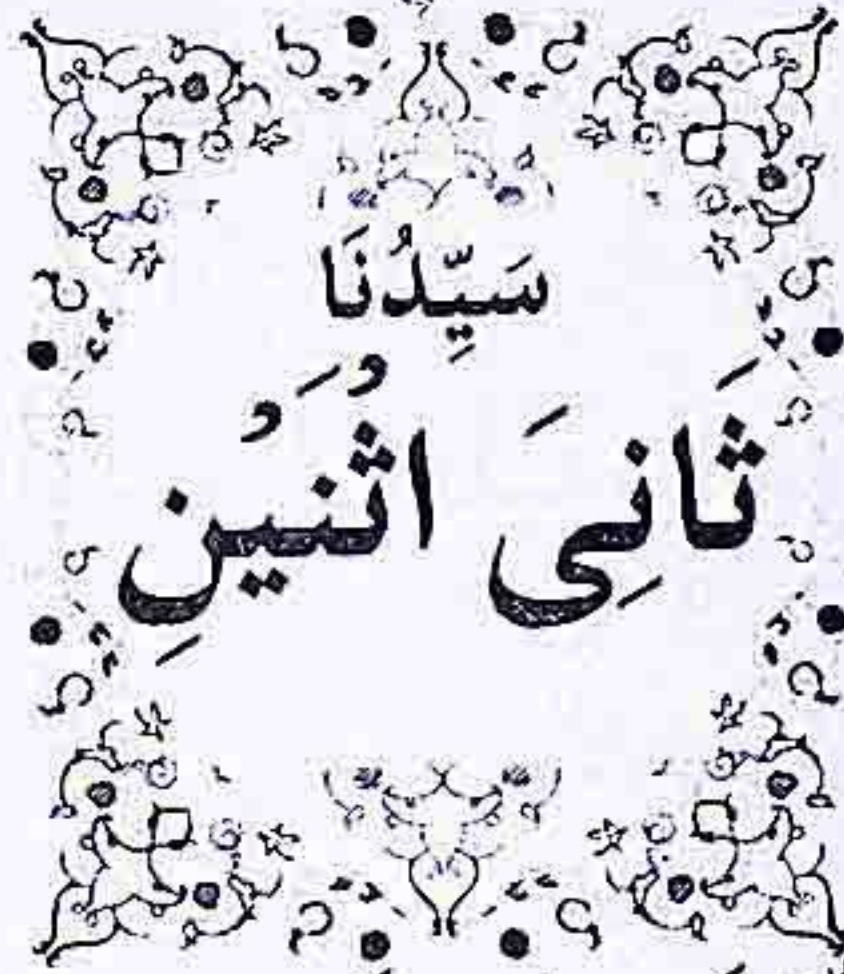 سَيِّدُنَا
ثَانِىَ اثْنَيْنِ